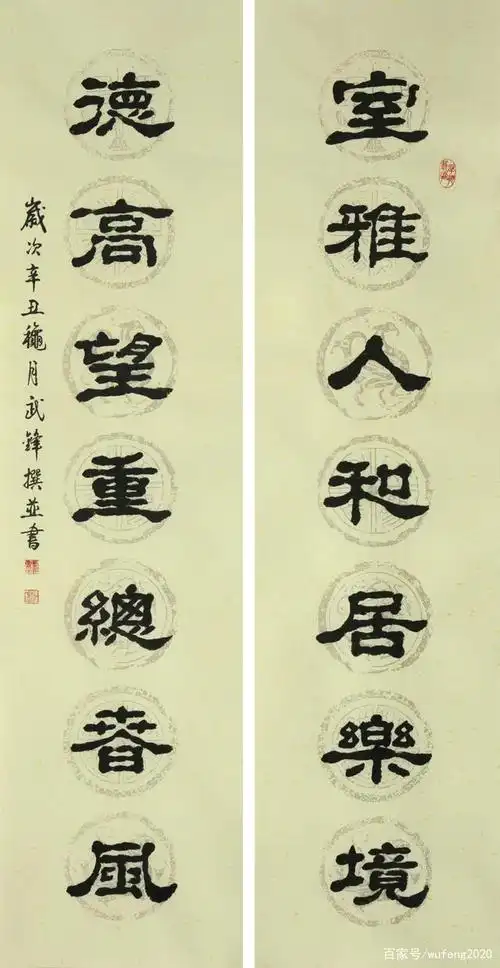 室雅人和居樂境
德高望重總春風
歲次辛丑龝月武鋒撰並書
百家号/wufong2020